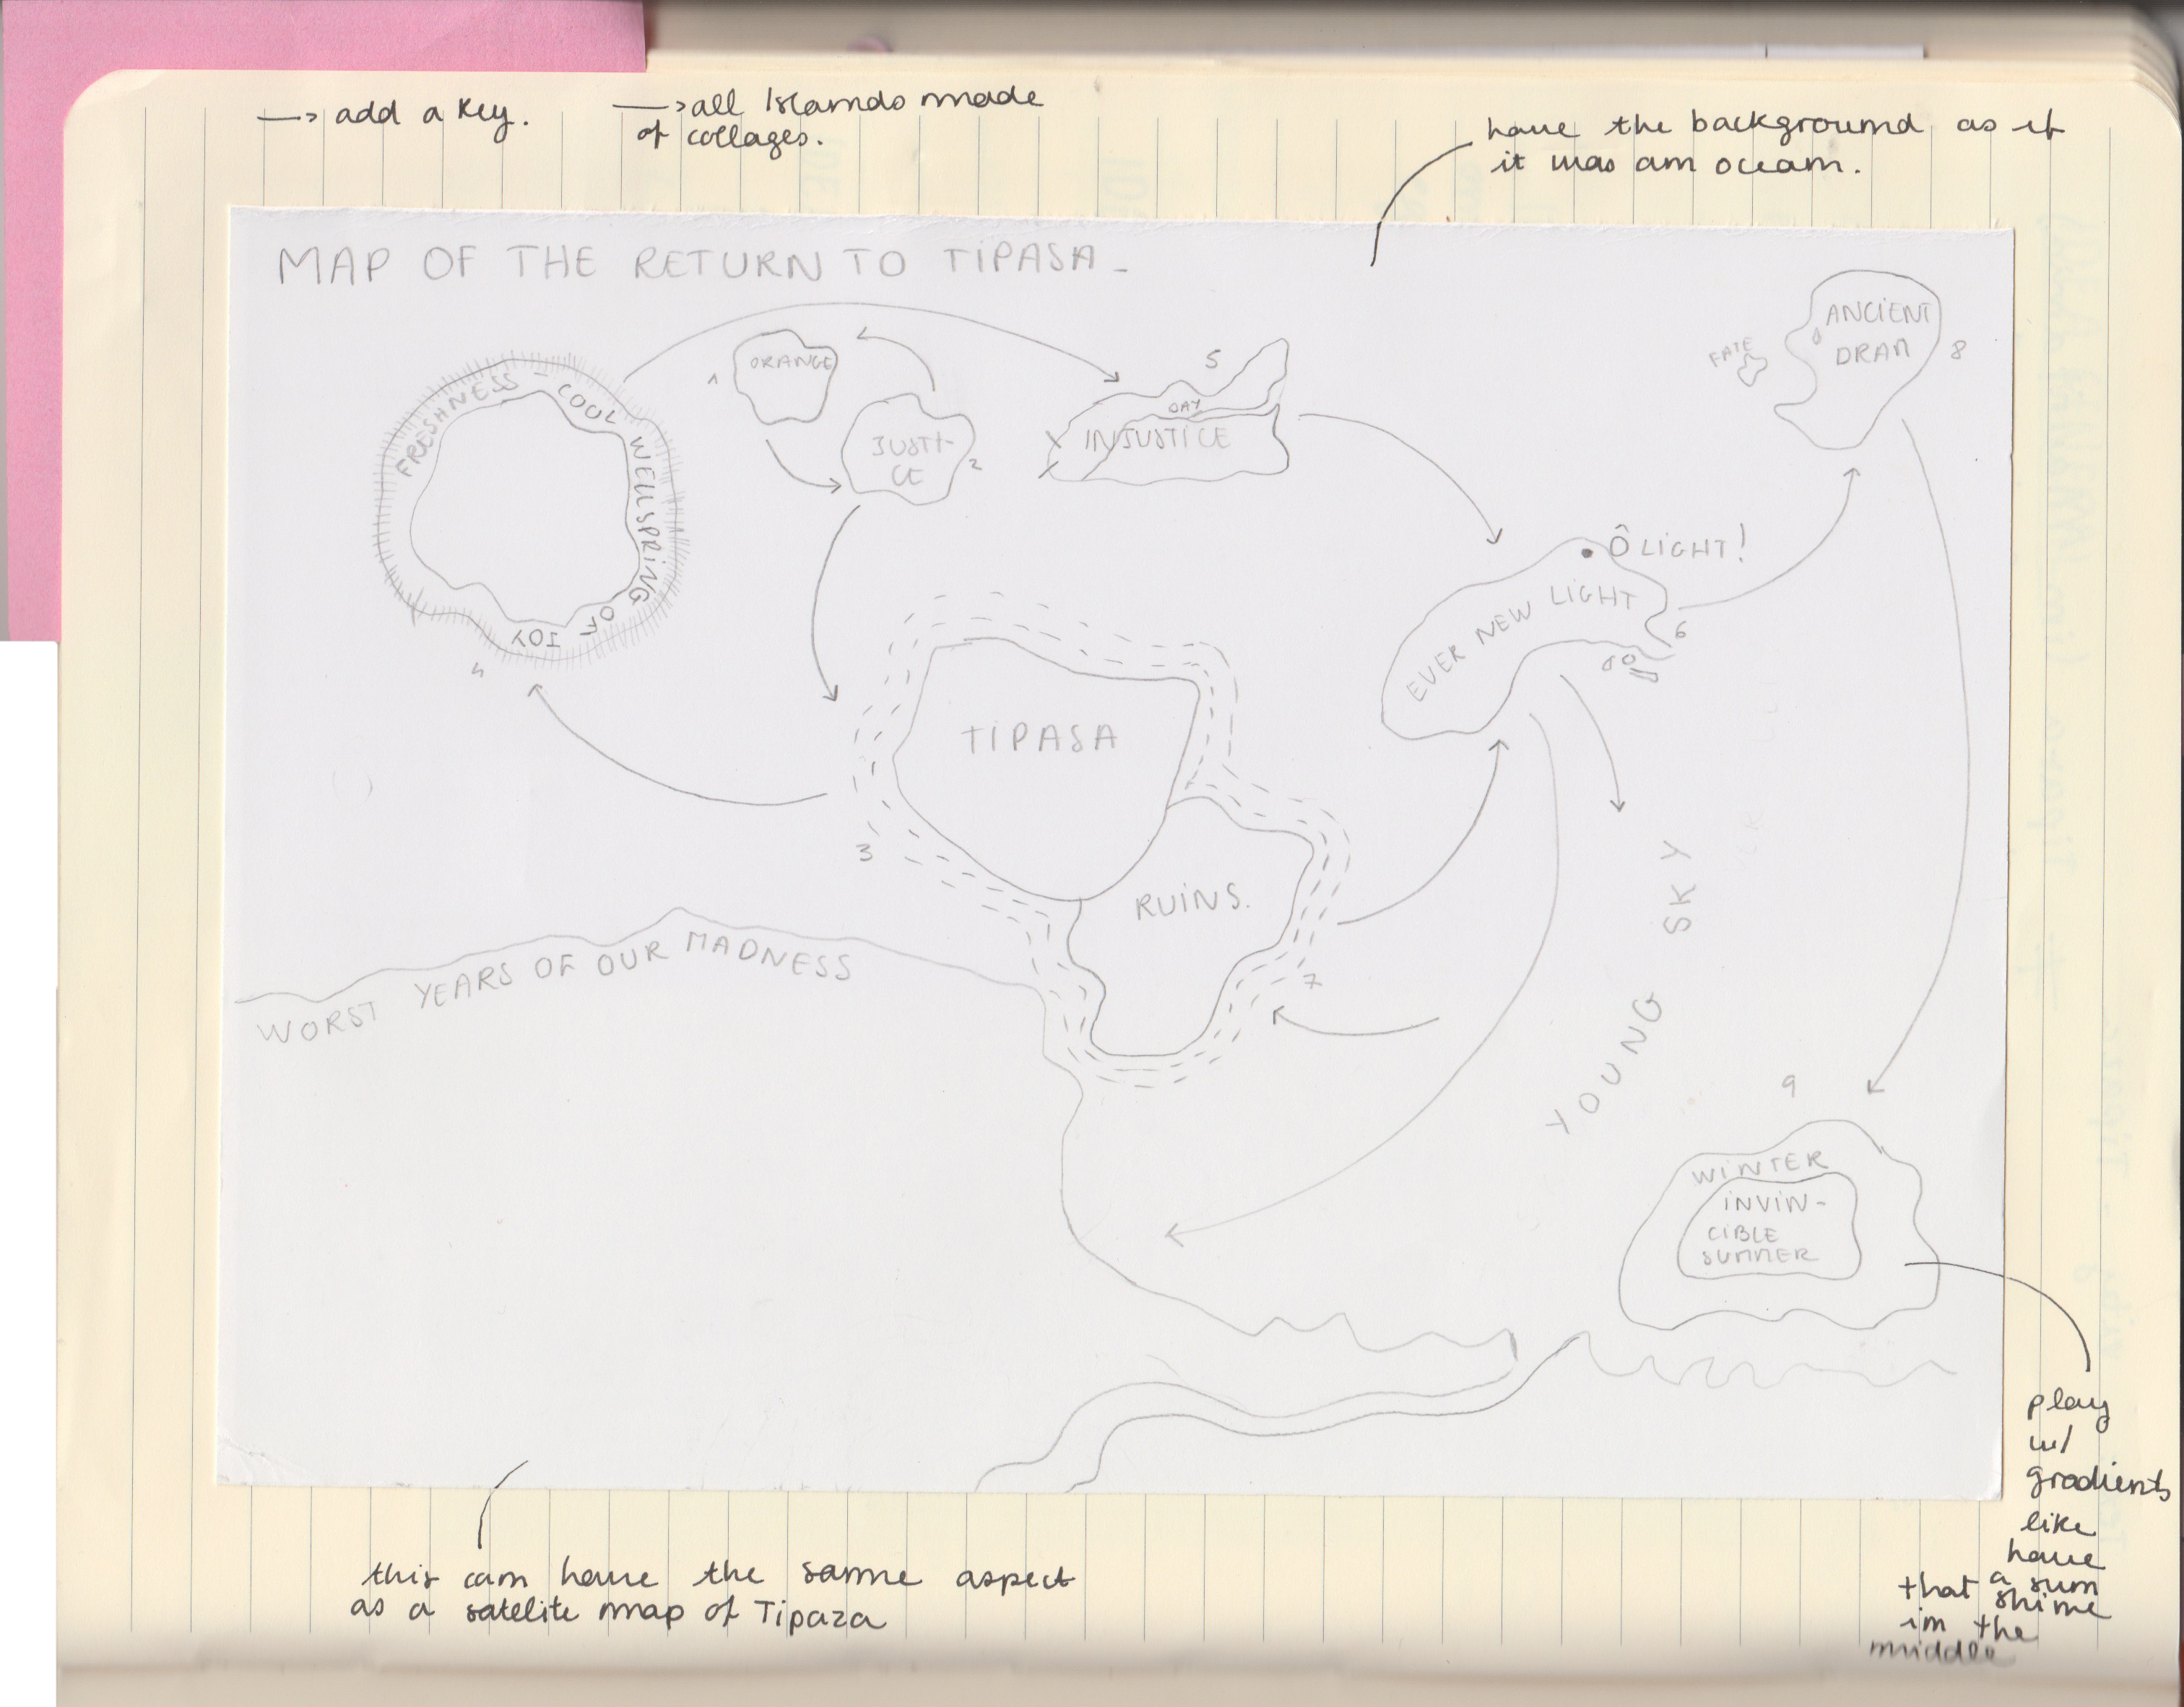 → add a key.
→ all Islands made
of collages.
have the background as if
it was an ocean.
MAP OF THE RETURN TO TIPASA -
ORANGE
1
JUSTI-
CE
2
5
DAY
INJUSTICE
FATE
ANCIENT
DRAM
8
FRESHNESS - COOL WELLSPRING OF JOY
4
Ô LIGHT!
EVER NEW LIGHT
6
TIPASA
3
RUINS.
7
WORST YEARS OF OUR MADNESS
YOUNG SKY
9
WINTER
INVIN-
CIBLE
SUMMER
play
w/
gradients
like
have
a sun
that shine
in the
middle
this can have the same aspect
as a satelite map of Tipaza